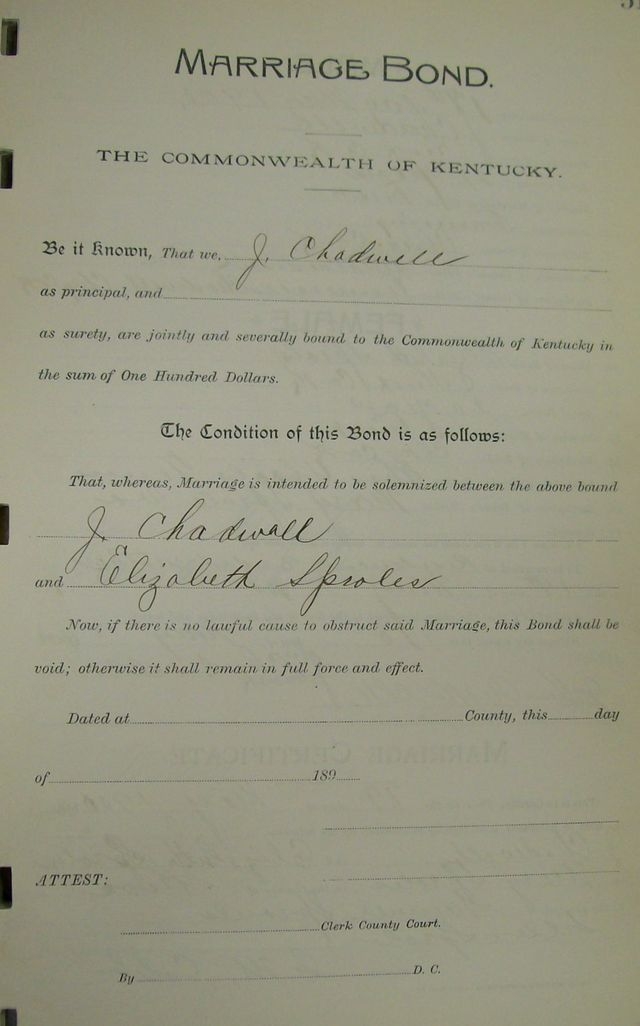 MARRIAGE BOND.
THE COMMONWEALTH OF KENTUCKY.
Be it Known, That we, J. Chadwell
as principal, and
as surety, are jointly and severally bound to the Commonwealth of Kentucky in
the sum of One Hundred Dollars.
The Condition of this Bond is as follows:
That, whereas, Marriage is intended to be solemnized between the above bound
J. Chadwell
and Elizabeth Sproles
Now, if there is no lawful cause to obstruct said Marriage, this Bond shall be
void; otherwise it shall remain in full force and effect.
Dated at County, this day
of 189
ATTEST:
Clerk County Court.
By D. C.